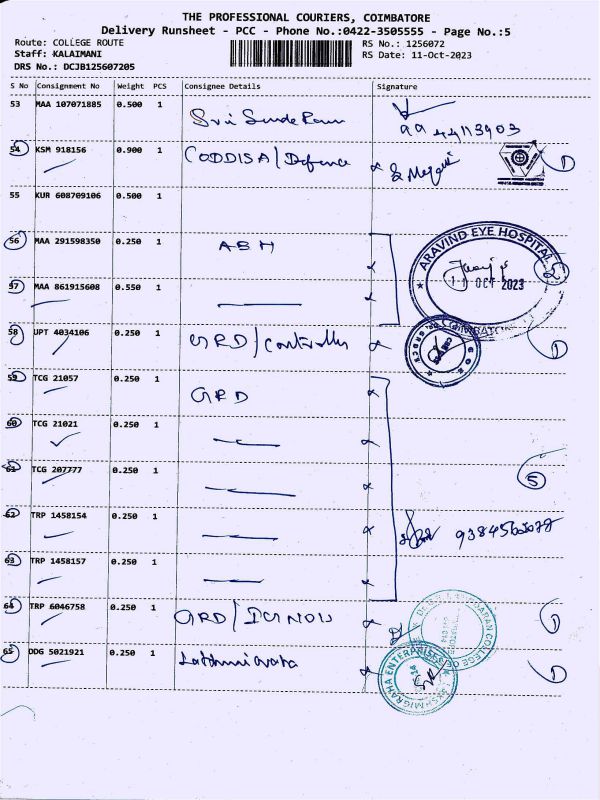 THE PROFESSIONAL COURIERS, COIMBATORE
Delivery Runsheet - PCC - Phone No.:0422-3505555 - Page No.:5
Route: COLLEGE ROUTE
Staff: KALAIMANI
DRS No.: DCJB125607205
RS No.: 1256072
RS Date: 11-Oct-2023
S No Consignment No Weight PCS Consignee Details Signature
53 MAA 107071885 0.500 1
54 KSM 918156 0.900 1 CODDISA/Defence
55 KUR 608709106 0.500 1
56 MAA 291598350 0.250 1 ABH
ARAVIND EYE HOSPITAL
11 OCT 2023
COIMBATORE
57 MAA 861915608 0.550 1
58 UPT 4034106 0.250 1 GRD/Controller 1
59 TCG 21057 0.250 1 GRD
60 TCG 21021 0.250 1
61 TCG 207777 0.250 1
5
62 TRP 1458154 0.250 1
63 TRP 1458157 0.250 1
64 TRP 6046758 0.250 1 GRD/IGNOU 1
65 ODG 5021921 0.250 1 1
ENTERPRISES